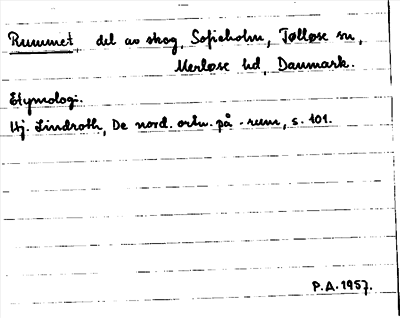 Rummet, del av skog, Sofieholm, Tølløse sn,
Merløse hd, Danmark.
Etymologi:
Hj. Lindroth, De nord. ortn. på -rum, s. 101.
P.A. 1957.